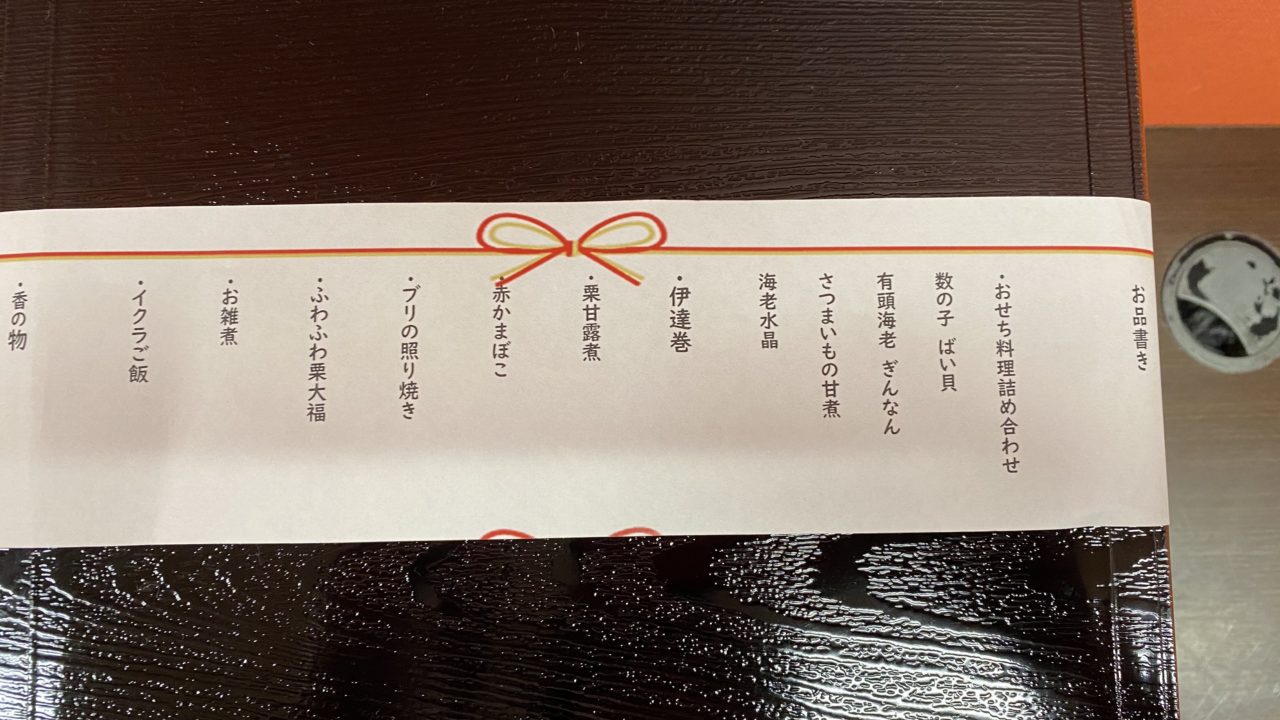 お品書き
・おせち料理詰め合わせ
数の子 ばい貝
有頭海老 ぎんなん
さつまいもの甘煮
海老水晶
・伊達巻
・栗甘露煮
・赤かまぼこ
・ブリの照り焼き
・ふわふわ栗大福
・お雑煮
・イクラご飯
・香の物